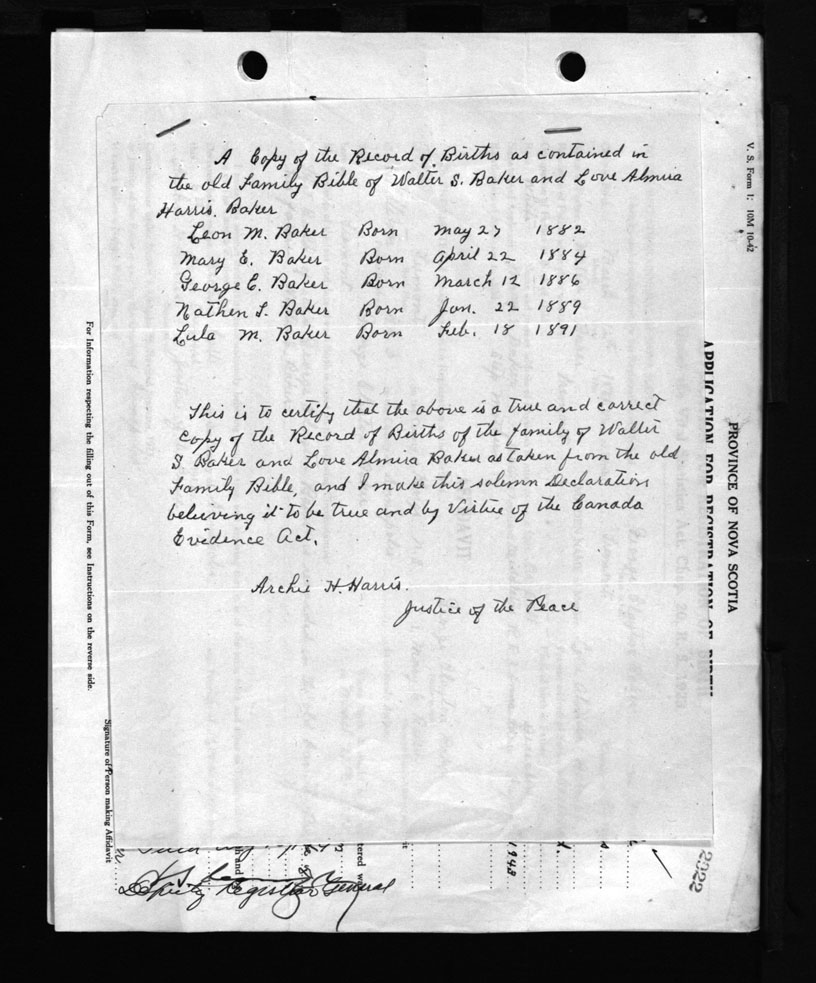 A Copy of the Record of Births as contained in
the old Family Bible of Walter S. Baker and Love Almira
Harris. Baker
Leon M. Baker Born May 27 1882
Mary E. Baker Born April 22 1884
George E. Baker Born March 12 1886
Nathen S. Baker Born Jan. 22 1889
Lula M. Baker Born Feb. 18 1891
This is to certify that the above is a true and correct
Copy of the Record of Births of the family of Walter
S. Baker and Love Almira Baker as taken from the old
Family Bible, and I make this solemn Declaration
believing it to be true and by Virtue of the Canada
Evidence Act.
Archie H. Harris.
Justice of the Peace
V. S. Form 1: 10M 10-42
PROVINCE OF NOVA SCOTIA
APPLICATION FOR REGISTRATION OF BIRTH
For Information respecting the filling out of this Form, see Instructions on the reverse side.
Signature of Person making Affidavit
tered
and
1948
2022
Deputy Registrar General